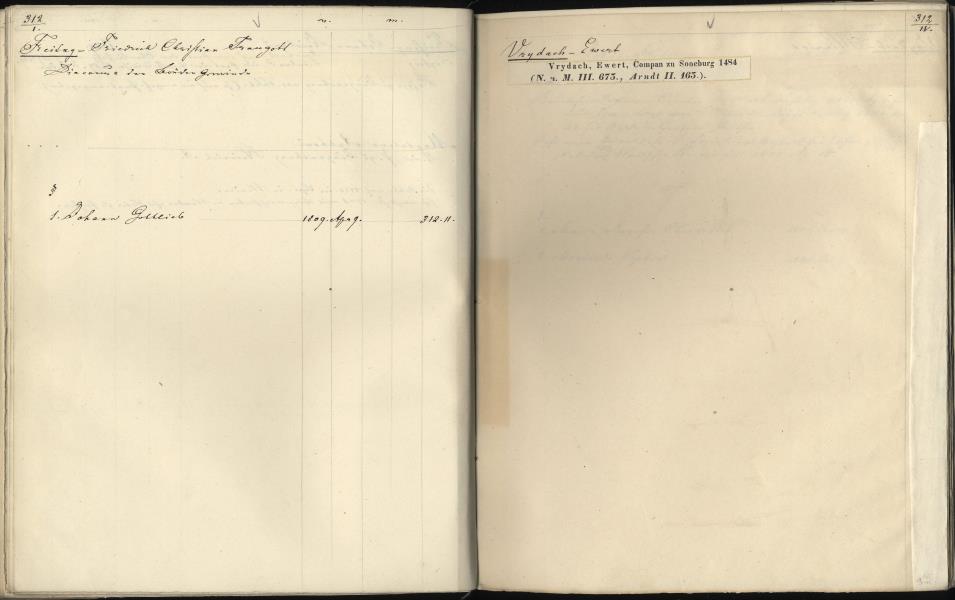 312
I.
n. m.
Freitag - Friedrich Christian Traugott
Diaconus der Brüder Gemeinde
1. Johann Gottlieb 1809. Apr 9. 312. II.
312
IV.
Vrydach - Ewert
Vrydach, Ewert, Compan zu Soneburg 1484
(N. u. M. III. 675., Arndt II. 165.).